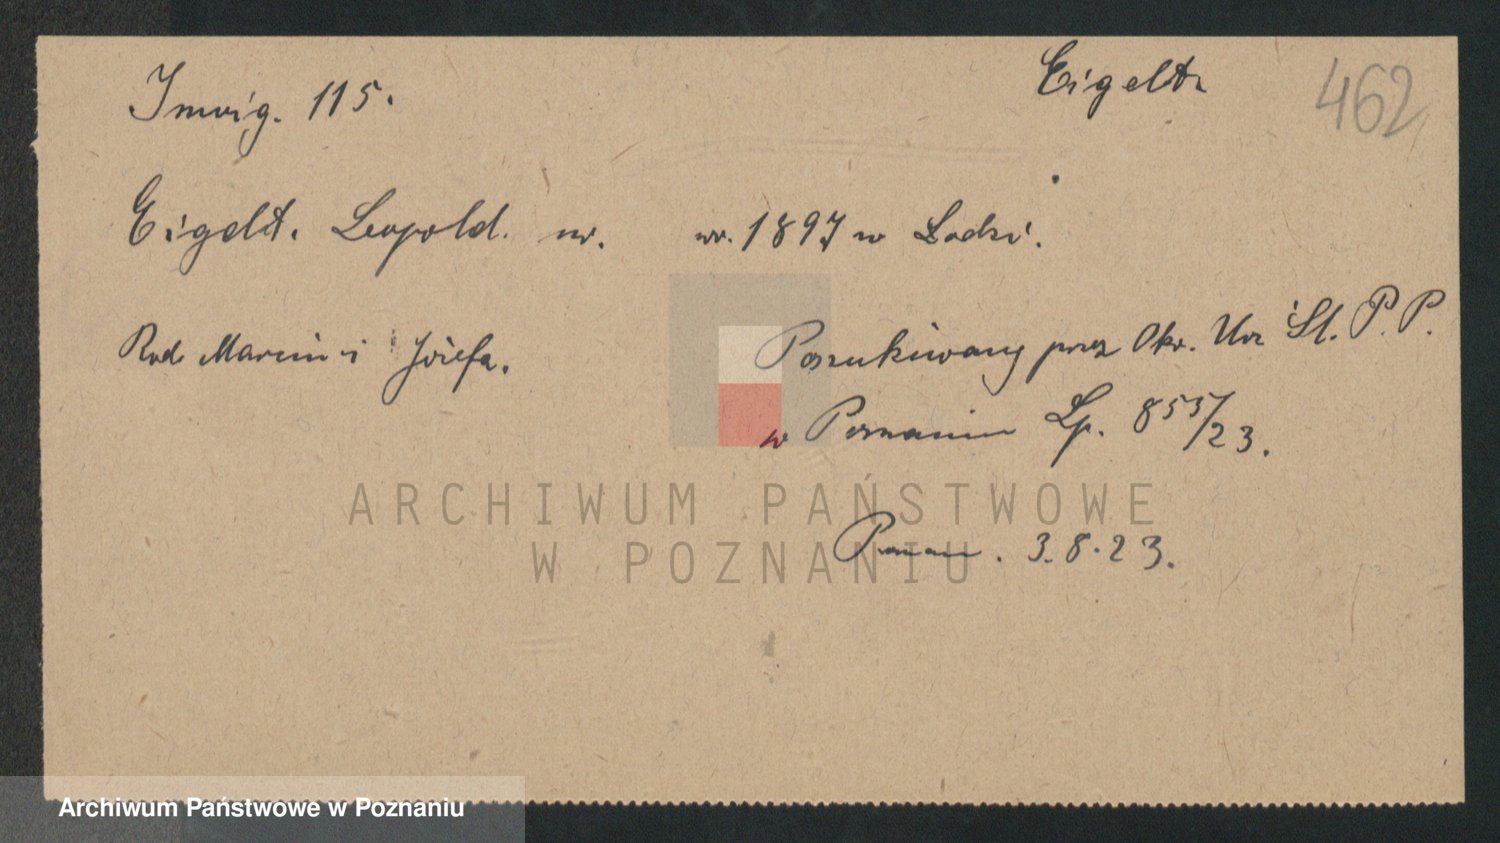 Inwig. 115.
Eigeltr
462
Eigelt. Leopold. ur. ur. 1897 w Lodzi.
Rod. Marcin i Józefa.
Poszukiwany przez Okr. Urz Śl. P. P.
w Poznaniu Lp. 853/23.
Poznań. 3.8.23.
ARCHIWUM PAŃSTWOWE
W POZNANIU
Archiwum Państwowe w Poznaniu